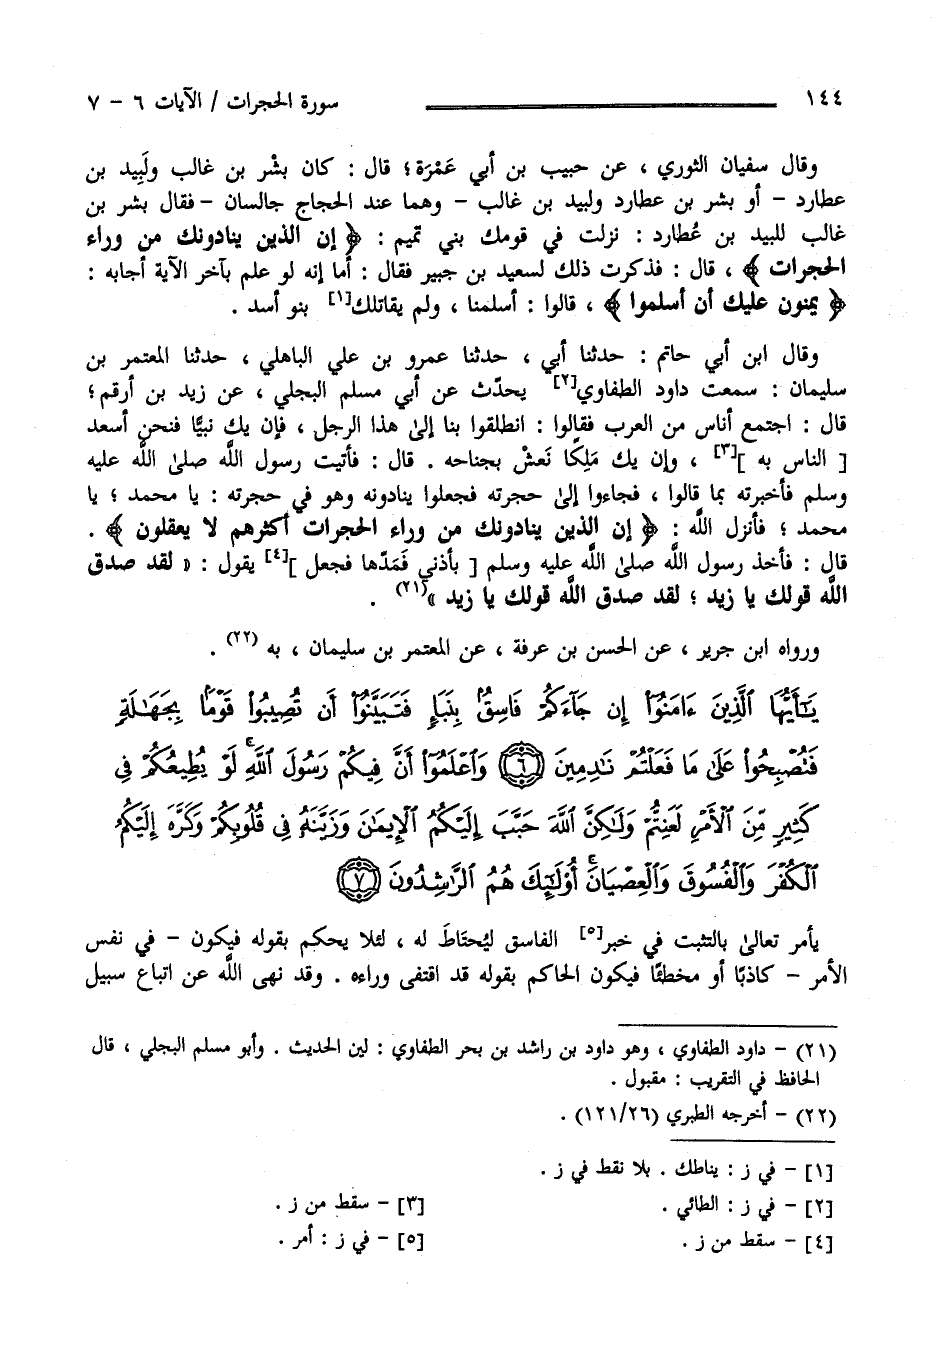 ١٤٤ سورة الحجرات / الآيات ٦ - ٧
وقال سفيان الثوري ، عن حبيب بن أبي عَمْرَة ؛ قال : كان بشْر بن غالب ولَبِيد بن
عطارد - أو بشر بن عطارد ولبيد بن غالب - وهما عند الحجاج جالسان - فقال بشر بن
غالب للبيد بن عُطارد : نزلت في قومك بني تميم : ﴿ إن الذين ينادونك من وراء
الحجرات ﴾ ، قال : فذكرت ذلك لسعيد بن جبير فقال : أما إنه لو علم بآخر الآية أجابه :
﴿ يمنون عليك أن أسلموا ﴾ ، قالوا : أسلمنا ، ولم يقاتلك[١] بنو أسد .
وقال ابن أبي حاتم : حدثنا أبي ، حدثنا عمرو بن علي الباهلي ، حدثنا المعتمر بن
سليمان : سمعت داود الطفاوي[٢] يحدّث عن أبي مسلم البجلي ، عن زيد بن أرقم ؛
قال : اجتمع أناس من العرب فقالوا : انطلقوا بنا إلىٰ هذا الرجل ، فإن يك نبيًّا فنحن أسعد
[ الناس به ][٣] ، وإن يك مَلِكًا نَعشْ بجناحه . قال : فأتيت رسول اللَّه صلىٰ اللَّه عليه
وسلم فأخبرته بما قالوا ، فجاءوا إلىٰ حجرته فجعلوا ينادونه وهو في حجرته : يا محمد ؛ يا
محمد ؛ فأنزل اللَّه : ﴿ إن الذين ينادونك من وراء الحجرات أكثرهم لا يعقلون ﴾ .
قال : فأخذ رسول اللَّه صلىٰ اللَّه عليه وسلم [ بأذني فَمَدّها فجعل ][٤] يقول : « لقد صدق
اللَّه قولك يا زيد ؛ لقد صدق اللَّه قولك يا زيد »(٢١) .
ورواه ابن جرير ، عن الحسن بن عرفة ، عن المعتمر بن سليمان ، به (٢٢) .
يَـٰٓأَيُّهَا ٱلَّذِينَ ءَامَنُوٓا۟ إِن جَآءَكُمْ فَاسِقٌۢ بِنَبَإٍ فَتَبَيَّنُوٓا۟ أَن تُصِيبُوا۟ قَوْمًۢا بِجَهَـٰلَةٍ
فَتُصْبِحُوا۟ عَلَىٰ مَا فَعَلْتُمْ نَـٰدِمِينَ ٦ وَٱعْلَمُوٓا۟ أَنَّ فِيكُمْ رَسُولَ ٱللَّهِ ۚ لَوْ يُطِيعُكُمْ فِى
كَثِيرٍ مِّنَ ٱلْأَمْرِ لَعَنِتُّمْ وَلَـٰكِنَّ ٱللَّهَ حَبَّبَ إِلَيْكُمُ ٱلْإِيمَـٰنَ وَزَيَّنَهُۥ فِى قُلُوبِكُمْ وَكَرَّهَ إِلَيْكُمُ
ٱلْكُفْرَ وَٱلْفُسُوقَ وَٱلْعِصْيَانَ ۚ أُو۟لَـٰٓئِكَ هُمُ ٱلرَّٰشِدُونَ ٧
يأمر تعالىٰ بالتثبت في خبر[٥] الفاسق ليُحتَاطَ له ، لئلا يحكم بقوله فيكون - في نفس
الأمر - كاذبًا أو مخطئًا فيكون الحاكم بقوله قد اقتفى وراءه . وقد نهى اللَّه عن اتباع سبيل
(٢١) - داود الطفاوي ، وهو داود بن راشد بن بحر الطفاوي : لين الحديث . وأبو مسلم البجلي ، قال
الحافظ في التقريب : مقبول .
(٢٢) - أخرجه الطبري (١٢١/٢٦) .
[١] - في ز : يناطك . بلا نقط في ز .
[٢] - في ز : الطائي . [٣] - سقط من ز .
[٤] - سقط من ز . [٥] - في ز : أمر .